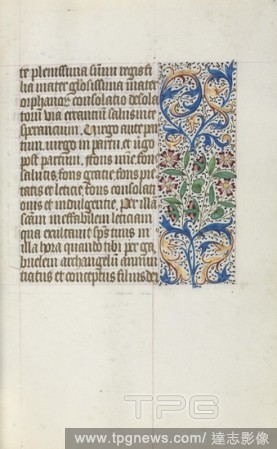 te plenissima summi regis fi
lia mater gloriosissima mater
orphanoꝝ consolatio desola
torū via errantium salus in te
sperantium. Uirgo ante par
tum. uirgo in partu. et ūgo
post partum. fons mīe. fons
salutis. fons gratie. fons pie
tatis et leticie. fons consolati
onis et indulgentie. Per illā
sc̄am ineffabilem leticiam
qua exultauit sp̄s tuus in
illa hora quando tibi per ga
brielem archangelū annun
tiatus et conceptus filius dei
TPG
www.tpgnews.com/達志影像